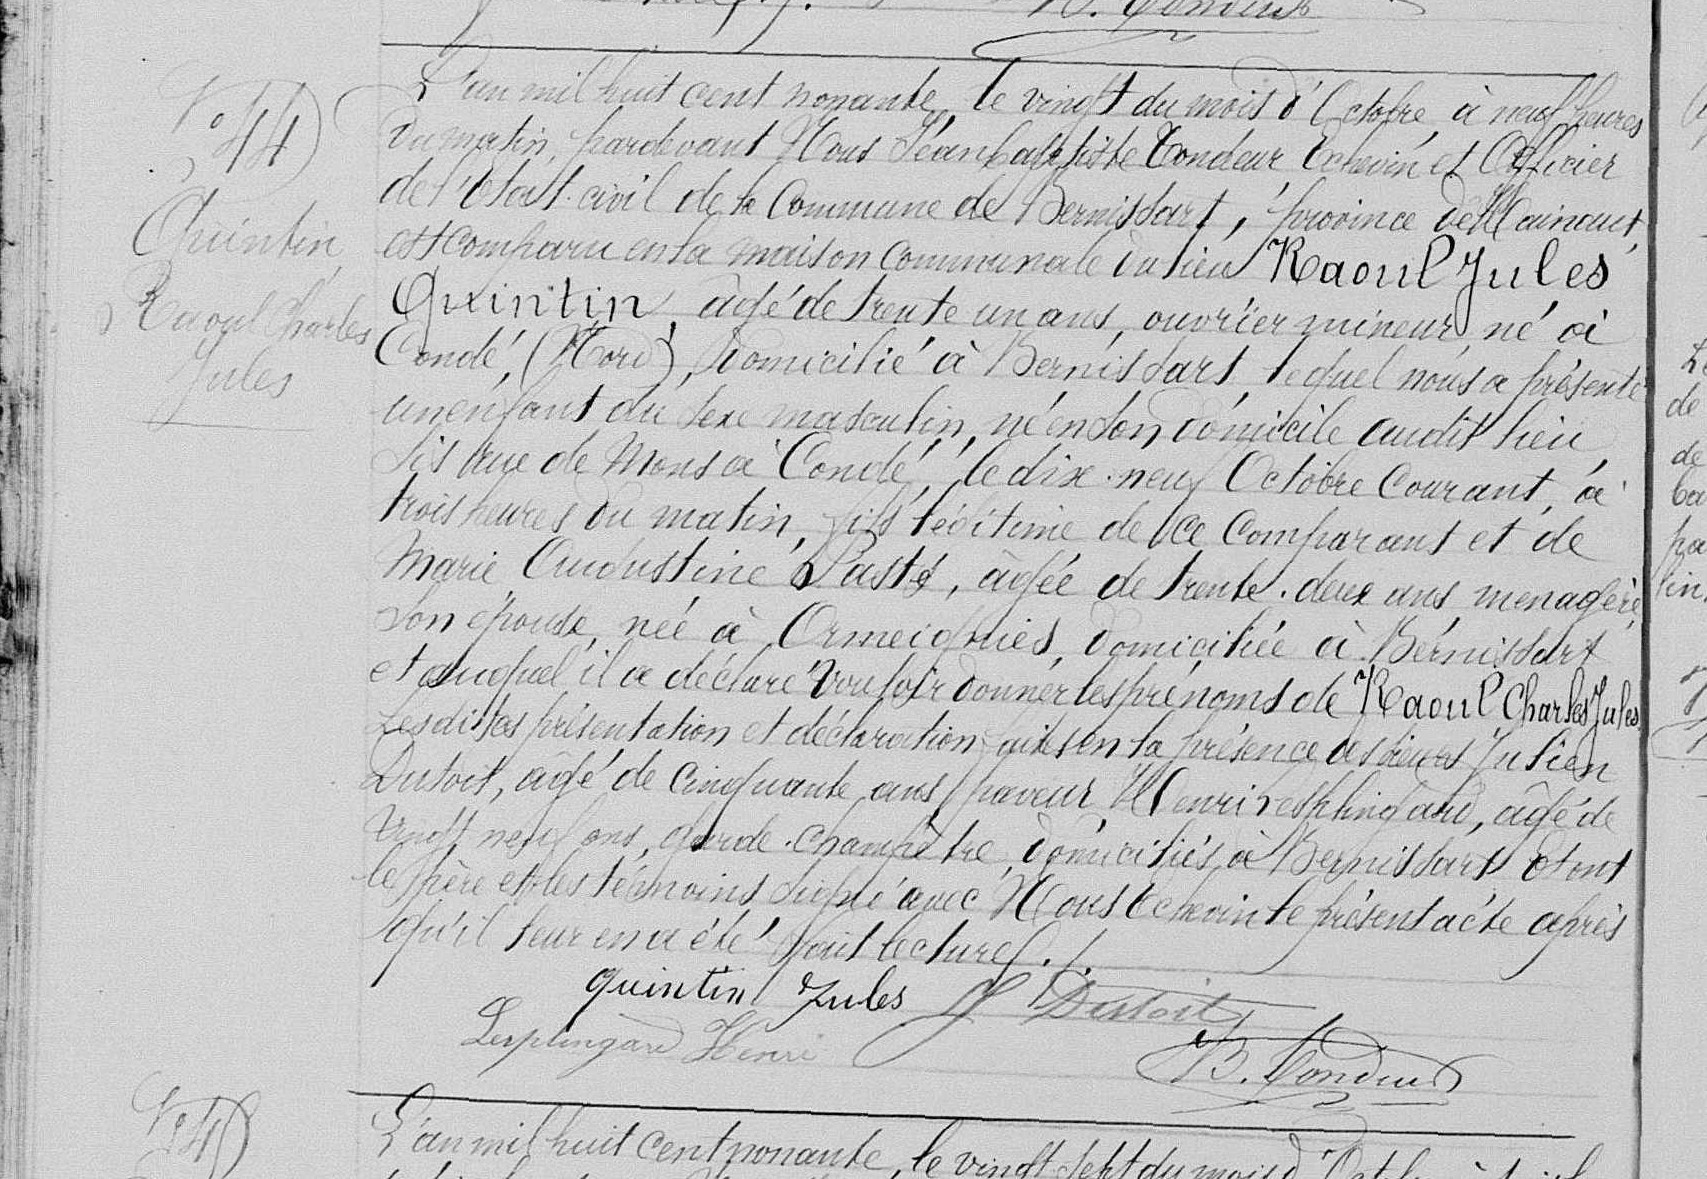 B. Tondeur
N° 44
Quintin
Raoul Charles
Jules
L'an mil huit cent nonante, le vingt du mois d'Octobre, à neuf heures
du matin, pardevant Nous Jean baptiste Tondeur Echevin et Officier
de l'état-civil de la Commune de Bernissart, province de Hainaut,
est comparu en la maison communale du lieu Raoul Jules
Quintin, âgé de trente un ans, ouvrier mineur né à
Condé, (Nord), domicilié à Bernissart, lequel nous a présenté
un enfant du sexe masculin, né en son domicile audit lieu
sis rue de Mons à Condé, le dix-neuf Octobre courant, à
trois heures du matin, fils légitime de ce comparant et de
Marie Augustine Pasté, âgée de trente-deux ans, menagère,
son épouse, née à Ormeignies, domiciliée à Bernissart
et auquel il a déclaré vouloir donner les prénoms de Raoul Charles Jules
Lesdites présentation et déclaration faites en la présence des sieurs Julien
Dutoit, âgé de cinquante ans, paveur, Henri Lesplingard, âgé de
vingt neuf ans, garde-champêtre, domiciliés à Bernissart. Et ont
le père et les témoins signé avec Nous Echevin le présent acte après
qu'il leur en a été fait lecture./.
Quintin Jules J Dutoit
Lesplingard Henri
B. Tondeur
N° 45
L'an mil huit cent nonante, le vingt sept du mois d'Octobre